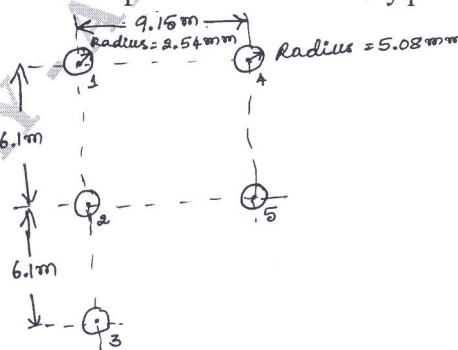 9.15m
Radius=2.54mm
Radius=5.08mm
1
4
6.1m
2
5
6.1m
3